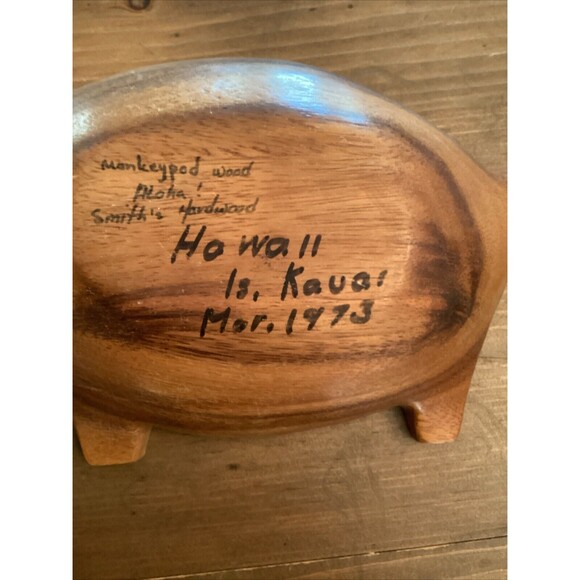 Monkeypod wood
Aloha!
Smith's Hardwood
Hawaii
Is. Kauai
Mar. 1973